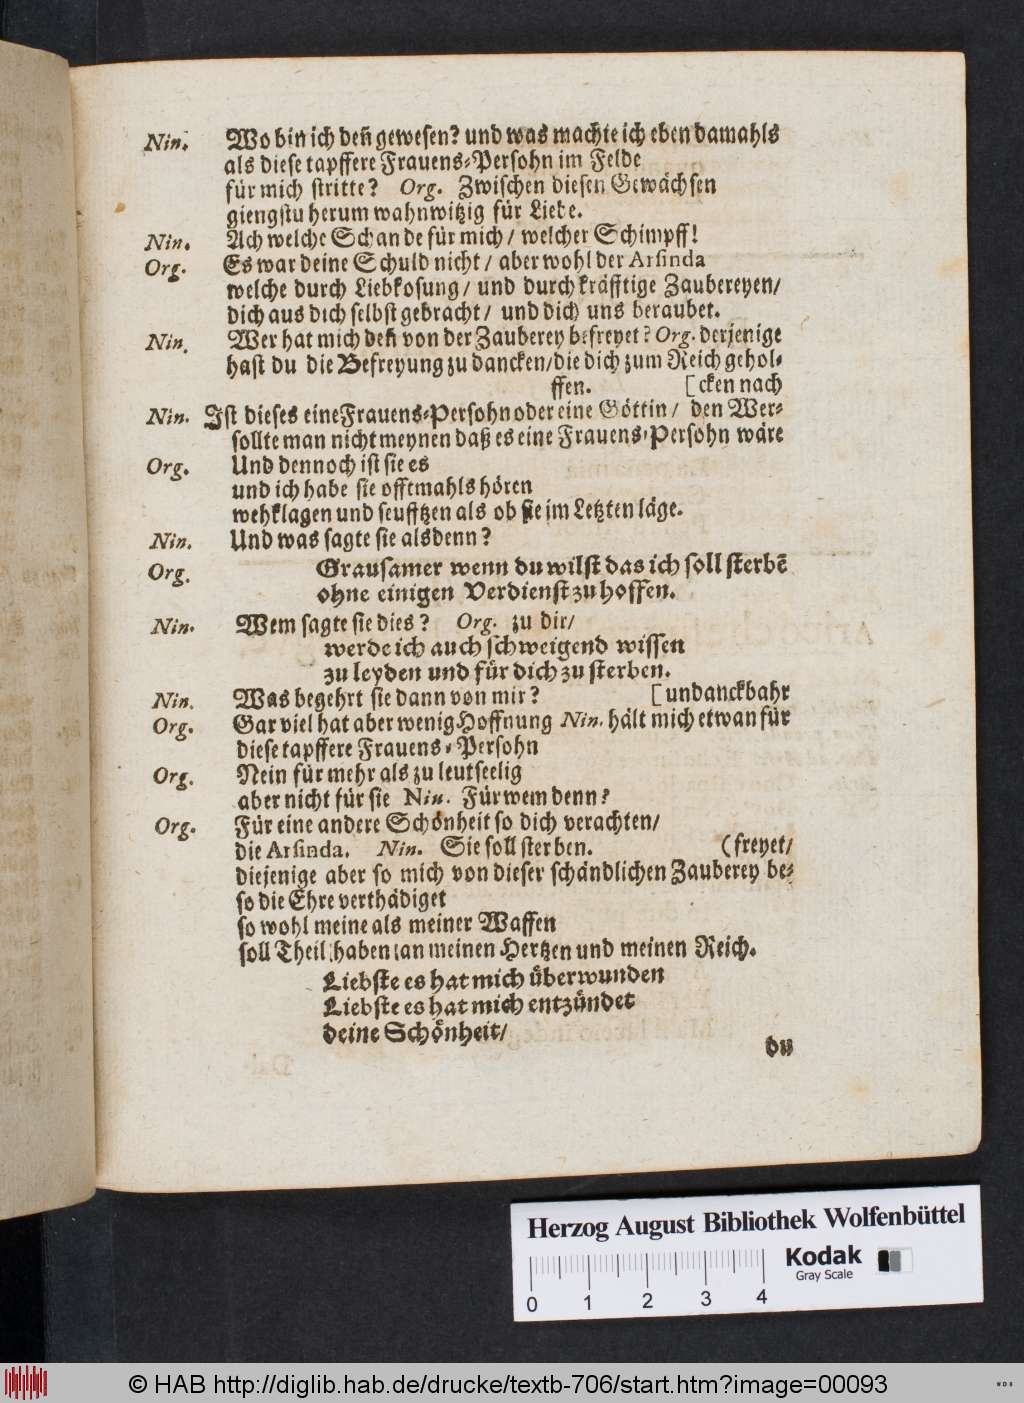 Nin. Wo bin ich den̄ gewesen? und was machte ich eben damahls
als diese tapffere Frauens-Persohn im Felde
für mich stritte? Org. Zwischen diesen Gewächsen
giengstu herum wahnwitzig für Liebe.
Nin. Ach welche Schande für mich / welcher Schimpff!
Org. Es war deine Schuld nicht / aber wohl der Arsinda
welche durch Liebkosung / und durch kräfftige Zaubereyen /
dich aus dich selbst gebracht / und dich uns beraubet.
Nin. Wer hat mich den̄ von der Zauberey befreyet? Org. derjenige
hast du die Befreyung zu dancken / die dich zum Reich gehol-
ffen. [cken nach
Nin. Ist dieses eine Frauens-Persohn oder eine Göttin / den Wer-
sollte man nicht meynen daß es eine Frauens-Persohn wäre
Org. Und dennoch ist sie es
und ich habe sie offtmahls hören
wehklagen und seufftzen als ob sie im Letzten läge.
Nin. Und was sagte sie alsdenn?
Org. Grausamer wenn du wilst das ich soll sterbē
ohne einigen Verdienst zu hoffen.
Nin. Wem sagte sie dies? Org. zu dir /
werde ich auch schweigend wissen
zu leyden und für dich zu sterben.
Nin. Was begehrt sie dann von mir? [undanckbahr
Org. Gar viel hat aber wenig Hoffnung Nin. hält mich etwan für
diese tapffere Frauens-Persohn
Org. Nein für mehr als zu leutseelig
aber nicht für sie Nin. Für wem denn?
Org. Für eine andere Schönheit so dich verachten /
die Arsinda. Nin. Sie soll sterben. (freyet /
diejenige aber so mich von dieser schändlichen Zauberey be-
so die Ehre verthädiget
so wohl meine als meiner Waffen
soll Theil haben an meinen Hertzen und meinen Reich.
Liebste es hat mich überwunden
Liebste es hat mich entzündet
deine Schönheit /
du
Herzog August Bibliothek Wolfenbüttel
Kodak
Gray Scale
0 1 2 3 4
© HAB http://diglib.hab.de/drucke/textb-706/start.htm?image=00093